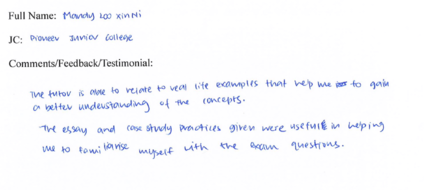 Full Name: Mandy Loo Xin Ni
JC: Pioneer Junior College
Comments/Feedback/Testimonial:
The tutor is able to relate to real life examples that help me to gain
a better understanding of the concepts.
The essay and case study practices given were useful in helping
me to familiarise myself with the exam questions.